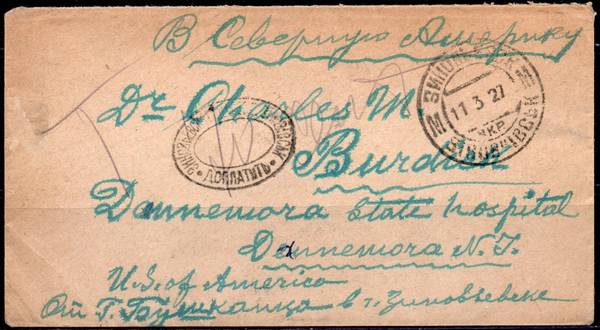 В Северную Америку
Dr Charles M
Burdick
Dannemora State hospital
Dannemora N.J.
U.S. of America
От Г. Бушканца в г. Зиновьевске
11 3 27
УКР
ДОПЛАТИТЬ